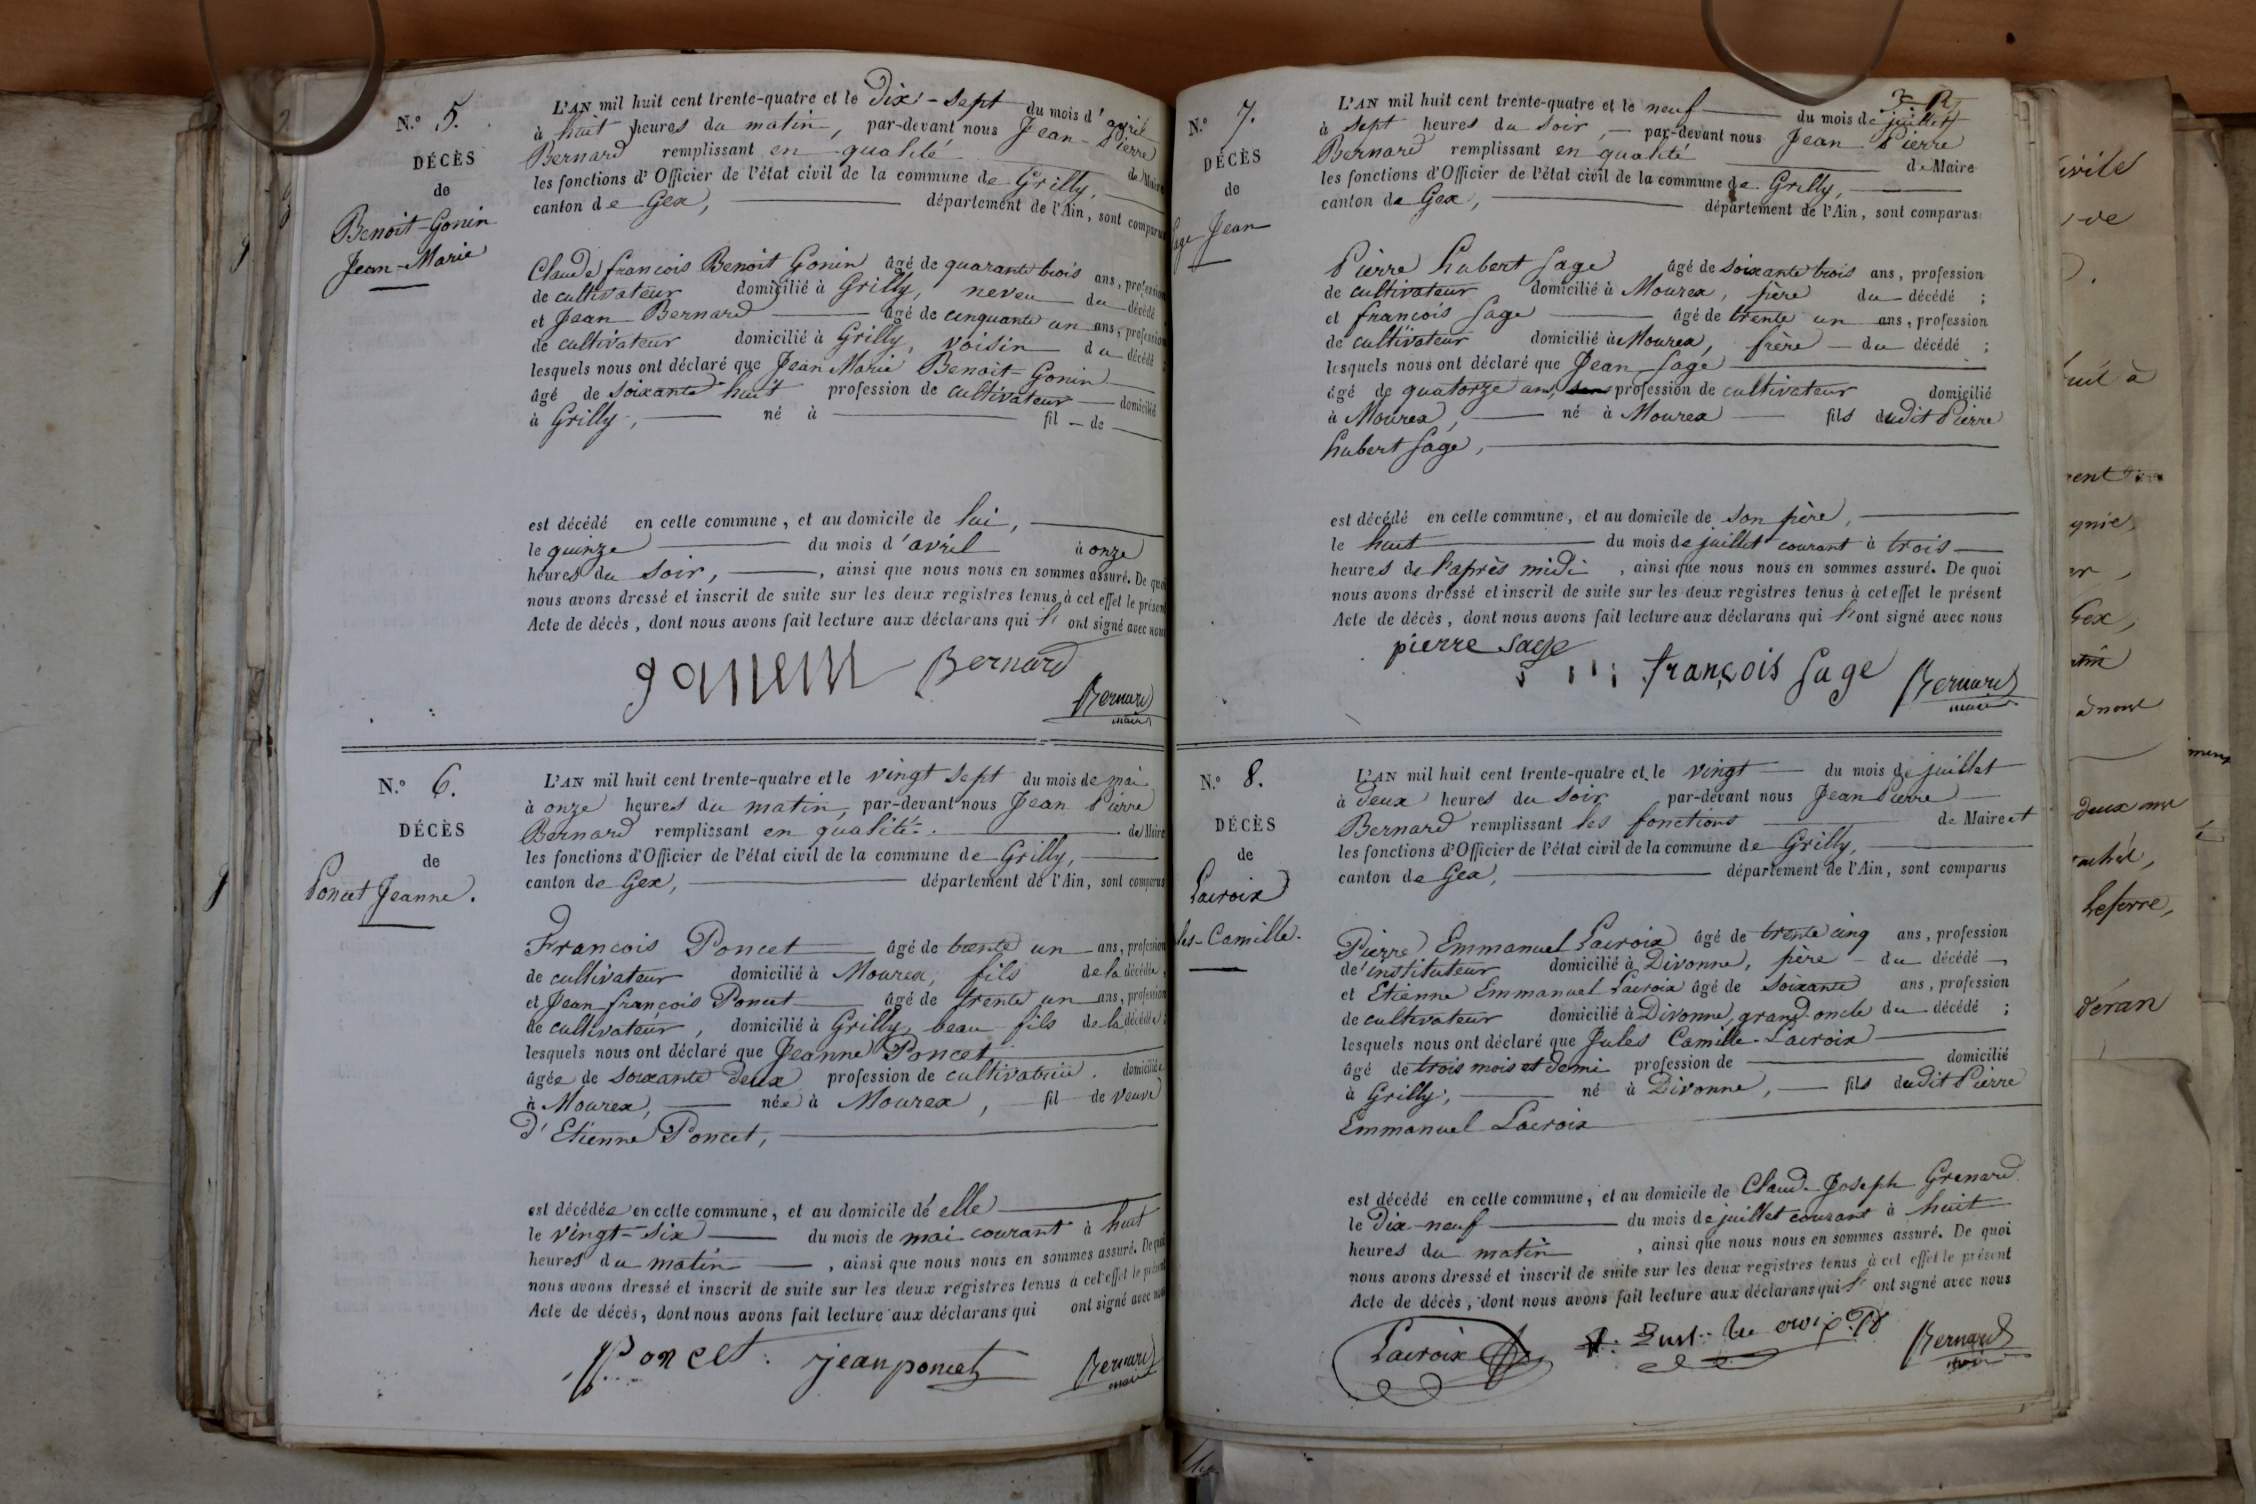 N.° 5.
DÉCÈS
de
Benoit-Gonin
Jean-Marie
L'AN mil huit cent trente-quatre et le Dix-sept du mois d'avril
à huit heures du matin, par-devant nous Jean-Pierre
Bernard remplissant en qualité de Maire
les fonctions d'Officier de l'état civil de la commune de Grilly,
canton de Gex, département de l'Ain, sont comparus
Claude francois Benoit Gonin âgé de quarante trois ans, profession
de cultivateur domicilié à Grilly, neveu du décédé
et Jean Bernard âgé de cinquante un ans, profession
de cultivateur domicilié à Grilly, voisin du décédé ;
lesquels nous ont déclaré que Jean Marie Benoit-Gonin
âgé de soixante huit profession de cultivateur domicilié
à Grilly, né à fil de
est décédé en cette commune, et au domicile de lui,
le quinze du mois d'avril à onze
heures du soir, , ainsi que nous nous en sommes assuré. De quoi
nous avons dressé et inscrit de suite sur les deux registres tenus à cet effet le présent
Acte de décès, dont nous avons fait lecture aux déclarans qui l' ont signé avec nous
gonem Bernard
Bernard
maire
N.° 6.
DÉCÈS
de
Poncet Jeanne.
L'AN mil huit cent trente-quatre et le vingt sept du mois de mai
à onze heures du matin, par-devant nous Jean Pierre
Bernard remplissant en qualité de Maire
les fonctions d'Officier de l'état civil de la commune de Grilly,
canton de Gex, département de l'Ain, sont comparus
Francois Poncet âgé de trente un ans, profession
de cultivateur domicilié à Mourex, fils de la décédée,
et Jean francois Poncet âgé de trente un ans, profession
de cultivateur, domicilié à Grilly, beau fils de la décédée ;
lesquels nous ont déclaré que Jeanne Poncet
âgée de soixante deux profession de cultivatrice. domiciliée
à Mourex, née à Mourex, fil de veuve
d'Etienne Poncet,
est décédée en cette commune, et au domicile d'elle
le vingt-six du mois de mai courant à huit
heures du matin , ainsi que nous nous en sommes assuré. De quoi
nous avons dressé et inscrit de suite sur les deux registres tenus à cet effet le présent
Acte de décès, dont nous avons fait lecture aux déclarans qui ont signé avec nous
Poncet jean poncet Bernard
maire
N.° 7.
DÉCÈS
de
Sage Jean
L'AN mil huit cent trente-quatre et le neuf du mois de juillet
à sept heures du soir, par-devant nous Jean Pierre
Bernard remplissant en qualité de Maire
les fonctions d'Officier de l'état civil de la commune de Grilly,
canton de Gex, département de l'Ain, sont comparus
Pierre hubert Sage âgé de soixante trois ans, profession
de cultivateur domicilié à Mourex, père du décédé ;
et françois Sage âgé de trente un ans, profession
de cultivateur domicilié à Mourex, frère du décédé ;
lesquels nous ont déclaré que Jean Sage
âgé de quatorze ans, profession de cultivateur domicilié
à Mourex, né à Mourex fils dudit Pierre
hubert Sage,
est décédé en cette commune, et au domicile de son père,
le huit du mois de juillet courant à trois
heures de l'après midi , ainsi que nous nous en sommes assuré. De quoi
nous avons dressé et inscrit de suite sur les deux registres tenus à cet effet le présent
Acte de décès, dont nous avons fait lecture aux déclarans qui l'ont signé avec nous
pierre sage
françois Sage Bernard
maire
N.° 8.
DÉCÈS
de
Lacroix
les-Camille.
L'AN mil huit cent trente-quatre et le vingt du mois de juillet
à deux heures du soir par-devant nous Jean Pierre
Bernard remplissant les fonctions de Maire et
les fonctions d'Officier de l'état civil de la commune de Grilly,
canton de Gex, département de l'Ain, sont comparus
Pierre Emmanuel Lacroix âgé de trente cinq ans, profession
de'instituteur domicilié à Divonne, père du décédé
et Etienne Emmanuel Lacroix âgé de soixante ans, profession
de cultivateur domicilié à Divonne, grand-oncle du décédé ;
lesquels nous ont déclaré que Jules Camille Lacroix
âgé de trois mois et demi profession de domicilié
à Grilly, né à Divonne, fils dudit Pierre
Emmanuel Lacroix
est décédé en cette commune, et au domicile de Claude-Joseph Grenard
le dix-neuf du mois de juillet courant à huit
heures du matin , ainsi que nous nous en sommes assuré. De quoi
nous avons dressé et inscrit de suite sur les deux registres tenus à cet effet le présent
Acte de décès, dont nous avons fait lecture aux déclarans qui l' ont signé avec nous
Lacroix Bernard
maire